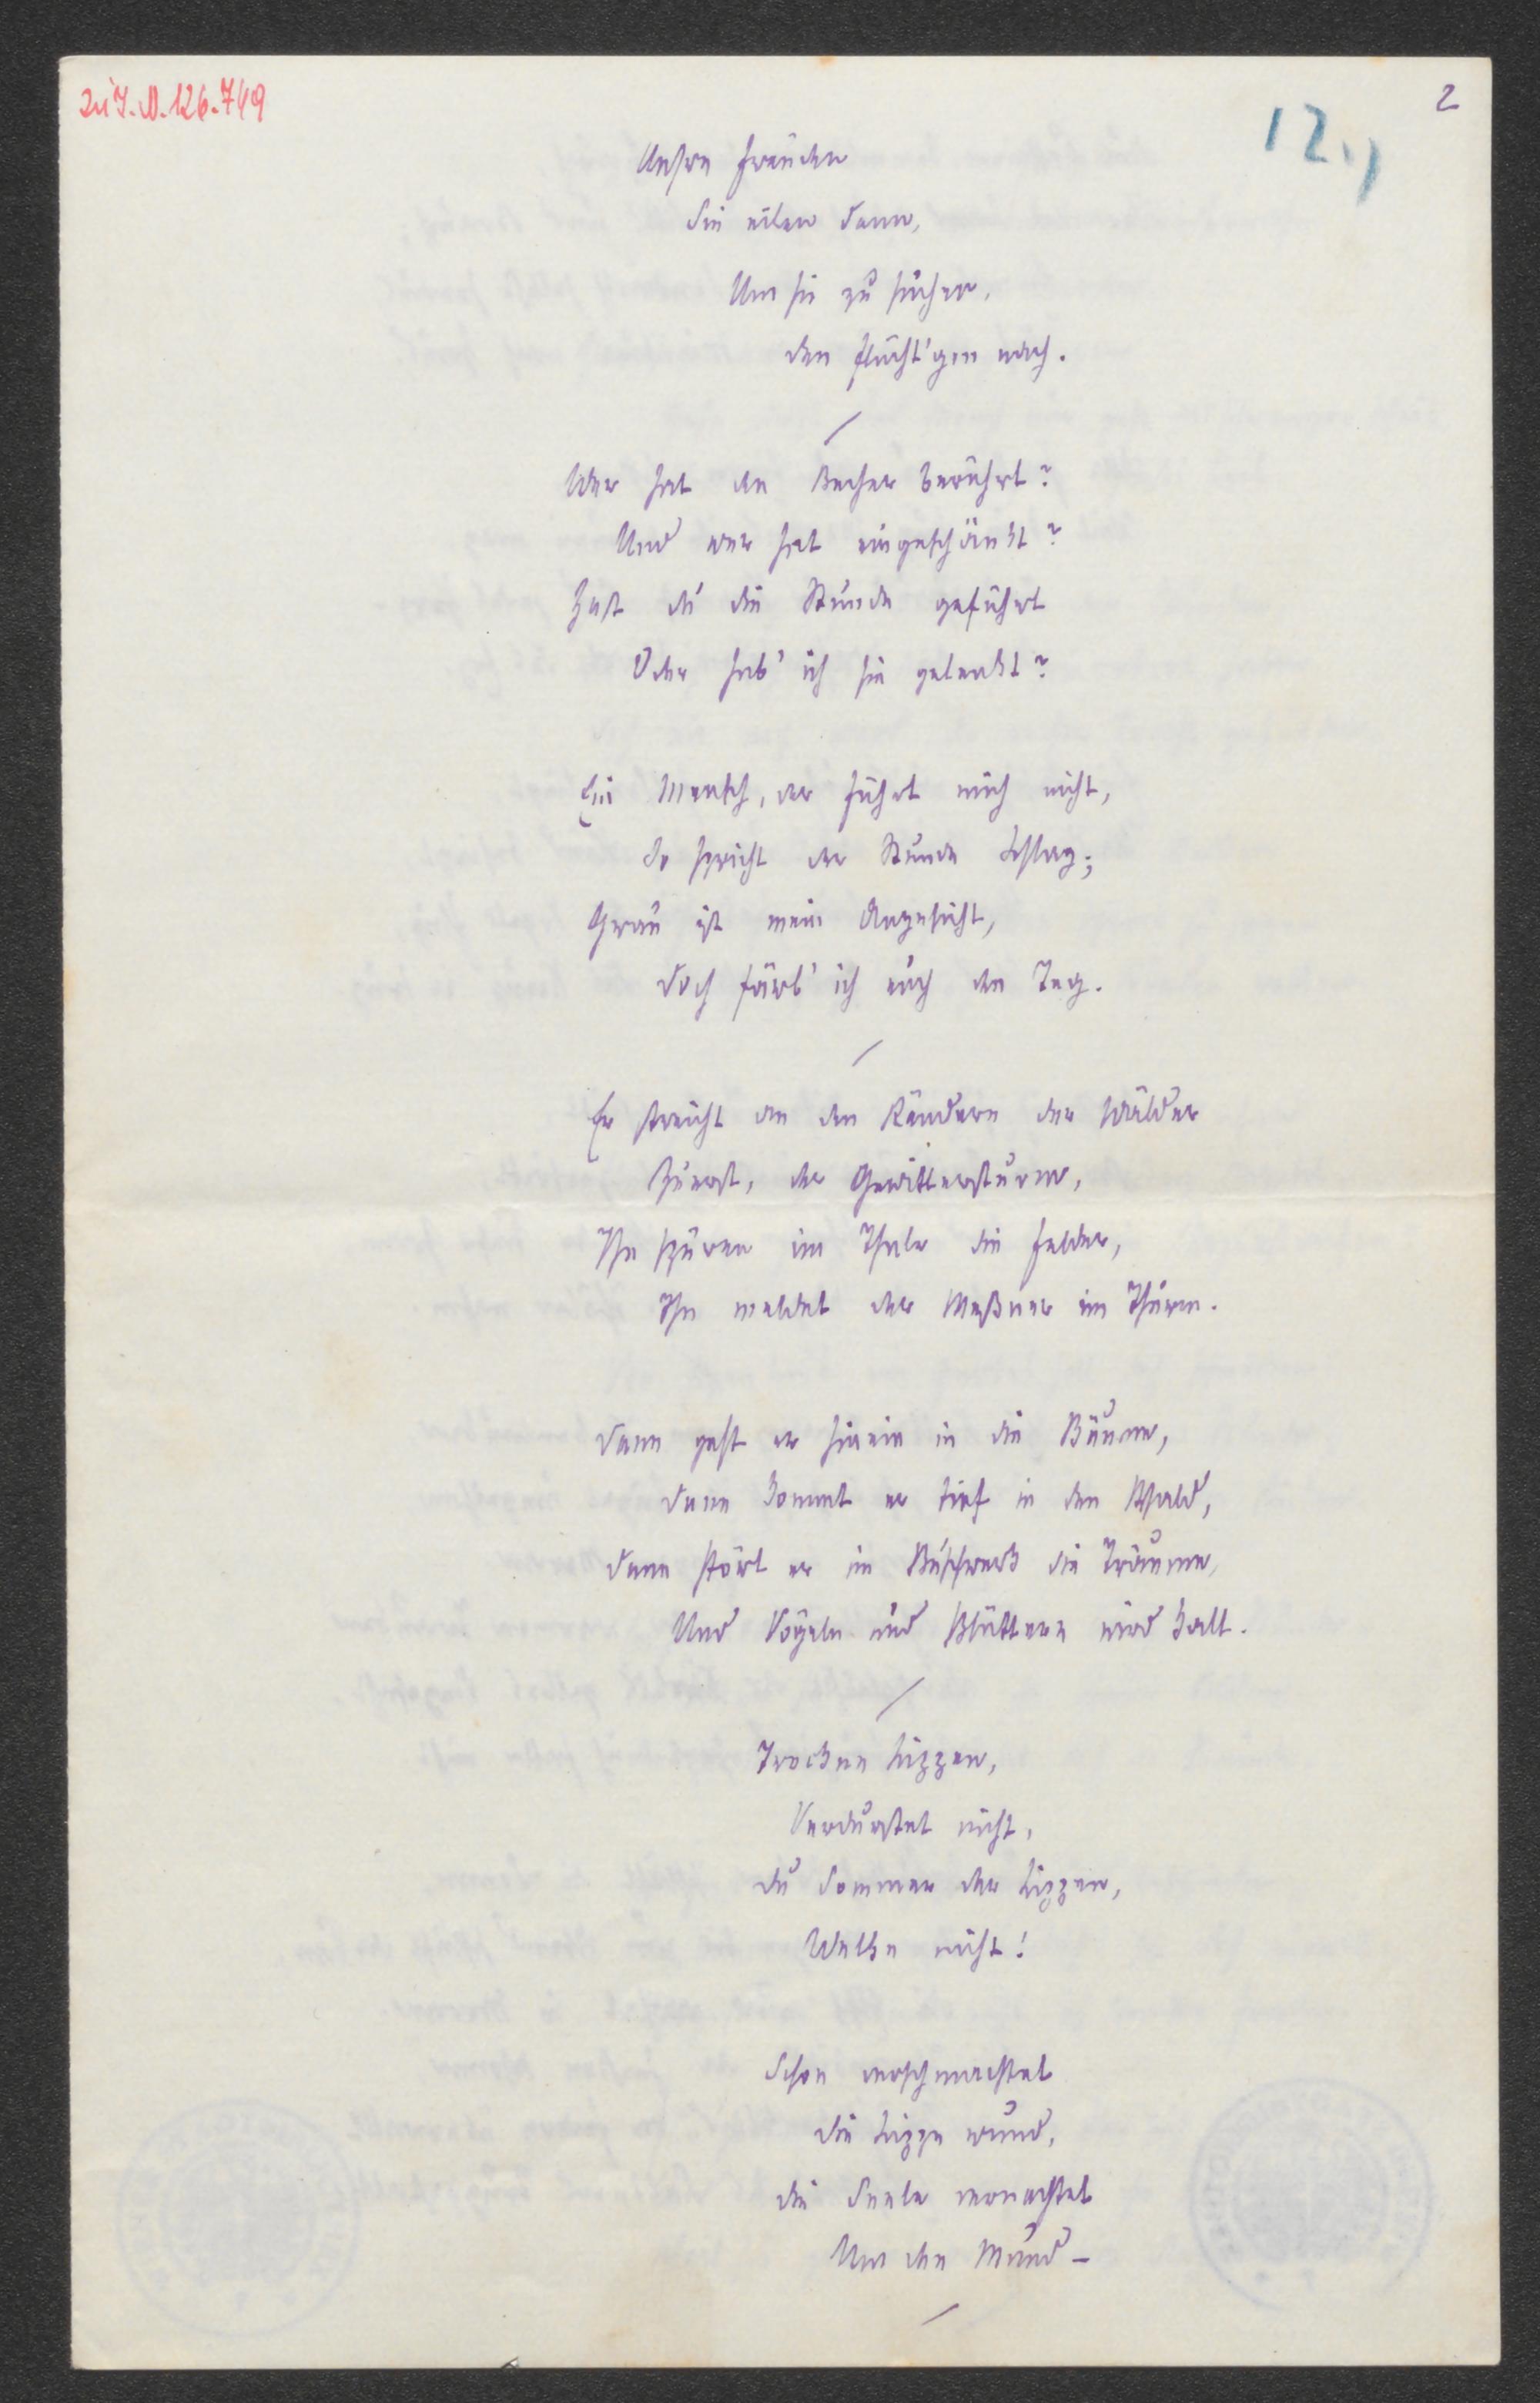 Zu I.N. 126.749
2
12.)
Unsre Freuden
Sie eilen dann,
Um sie zu suchen,
Den flücht'gen nach.
/
Wer hat den Becher berührt?
Und wer hat eingeschänkt?
Hast du die Stunde geführt
Oder hab' ich sie gelenkt?
Ein Mensch, der führt mich nicht,
So spricht der Stunde Schlag;
Grau ist mein Angesicht,
Doch färb' ich euch den Tag.
/
Er streicht an den Rändern der Wälder
Zuerst, der Gewittersturm,
Ihn spüren im Thale die Felder,
Ihn meldet der Meßner im Thurm.
Dann geht er hinein in die Bäume,
Dann kommt er tief in den Wald,
Dann stört er im Buschwerk die Träume,
Und Vögeln und Blättern wird kalt.
/
Trockne Lippen,
Verdurstet nicht,
Du Sommer der Lippen,
Welke nicht!
Schon verschmachtet
Die Lippe wund,
Die Seele vernachtet
Um den Mund –
/